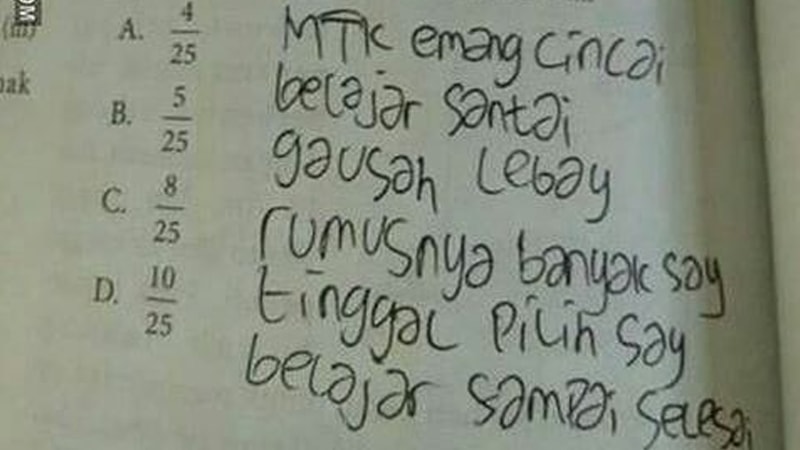 (iii)
A. 4/25
MTK emang cincai
belajar santai
B. 5/25
gausah lebay
C. 8/25
rumusnya banyak say
D. 10/25
tinggal pilih say
belajar sampai selesai